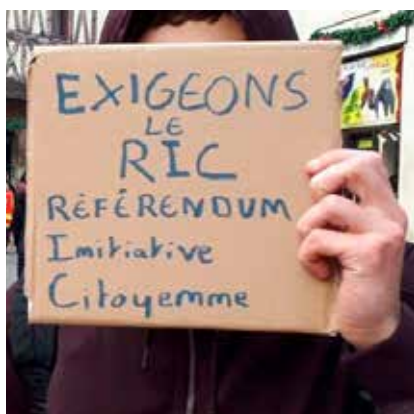 EXIGEONS
LE
RIC
RÉFÉRENDUM
Initiative
Citoyenne